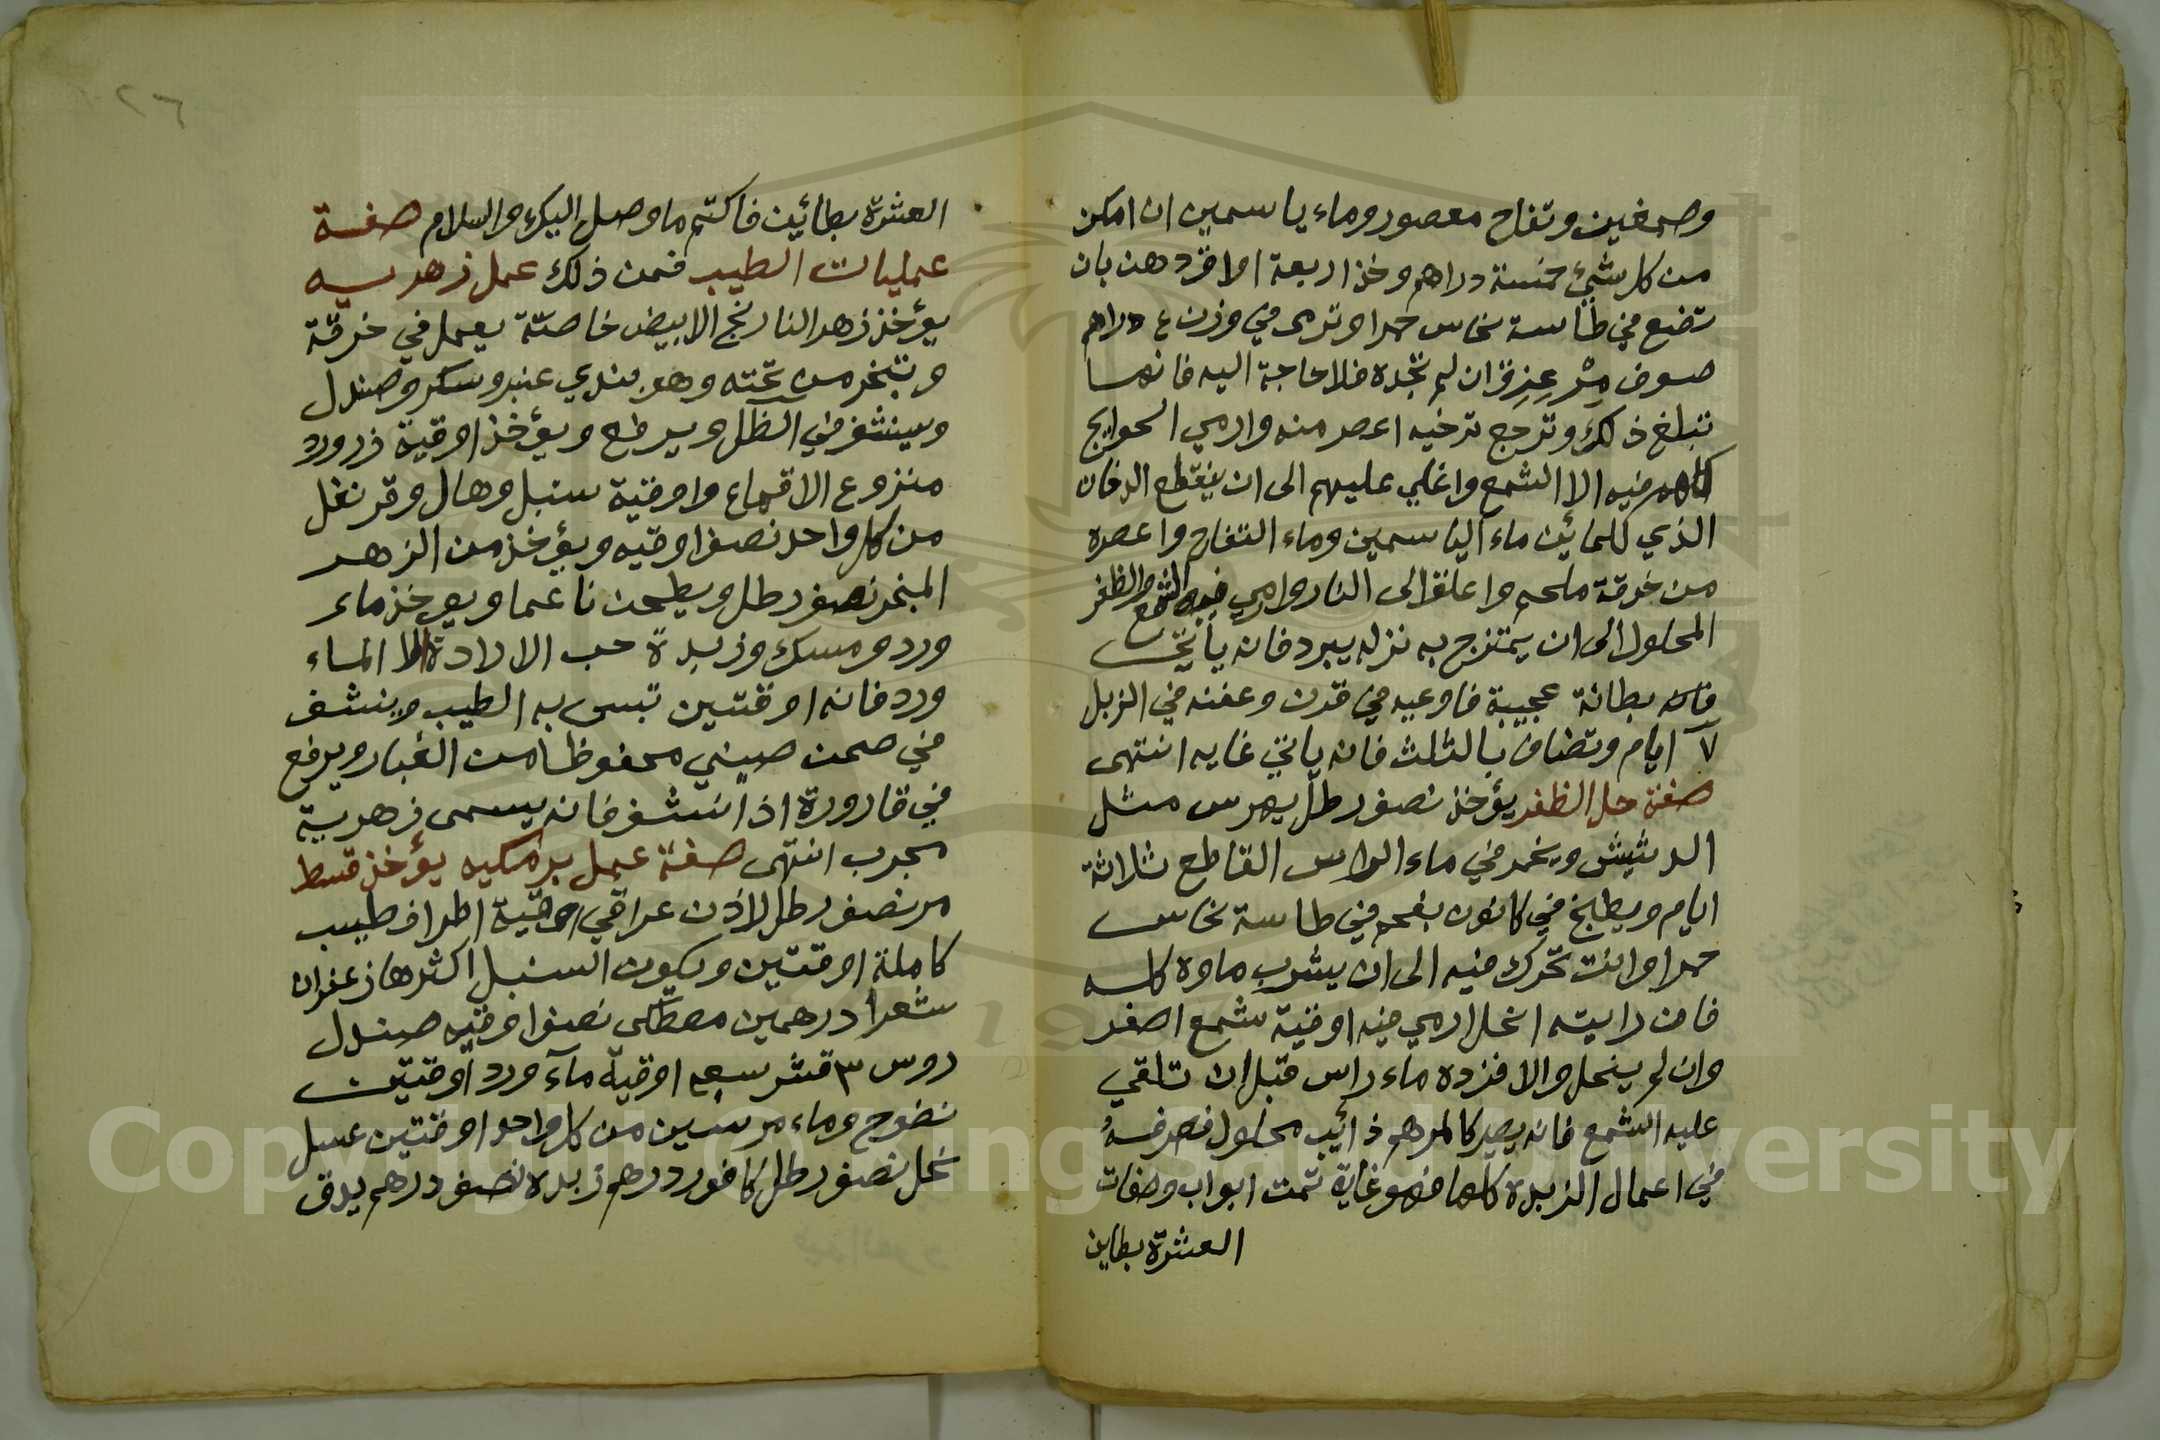 وصمغين وتفاح معصور وماء ياسمين ان امكن
من كل شيئ خمسة دراهم وخذ اربعة اواق دهن بان
تضع في طاسة نحاس حمرا وترمى في وزن ٤ دراهم
صوف مرعز فان لم تجده فلا حاجة اليه فانها
تبلغ ذلك وترجع ترخيه اعصر منه وارمي الحوايج
كلهم فيه الا الشمع واغلي عليهم الى ان ينقطع الدخان
الذي للمائين ماء الياسمين وماء التفاح واعصره
من خرقة ملحم واعلق الى النار وارمي فيه الشمع والظفر
المحلول الى ان يمتزج به نزله يبرد فانه يأتي
فانه بطانة عجيبة فاوعيه في قدن وعفنه في الزبل
٧ ايام وتضاف بالثلث فانه ياتي غايه انتهى
صفة حل الظفر يؤخذ نصف رطل يهرس مثل
الدشيش ويخمر في ماء الراس القاطع ثلاثة
ايام ويطبخ في كانون بفحم في طاسة نحاس
حمرا وانت تحرك فيه الى ان يشرب ماوه كله
فان رايته انحل ارمي فيه اوقية شمع اصفر
وان لم ينحل والا فزده ماء راس قبل ان تلقي
عليه الشمع فانه يصير كالمرهم ذائب محلول فصرفه
في اعمال الزبدة كلها فهو غاية تمت ابواب وصفات
العشرة بطاين
٢٦
العشرة بطائين فاكتم ما وصل اليك والسلام صفة
عمليات الطيب فمن ذلك عمل زهريه
يؤخذ زهر النارنج الابيض خاصة يعمل في خرقة
وتبخر من تحته وهو بندي عنبر وسكر وصندل
وينشف في الظل ويرفع ويؤخذ اوقية زر ورد
منزوع الاقماع واوقية سنبل وهال وقرنفل
من كل واحد نصف اوقيه ويؤخذ من الزهر
المبخر نصف رطل ويطحن ناعما ويوخذ ماء
ورد ومسك وزبدة حب الارادة الماء
ورد فانه اوقتين تبسى به الطيب وينشف
في صحن صيني محفوظا من الغبار ويرفع
في قارورة اذا نشف فانه يسمى زهرية
مجرب انتهى صفة عمل برمكيه يؤخذ قسط
مر نصف رطل لاذن عراقي اوقية اطراف طيب
كاملة اوقتين ويكون السنبل اكثرها زعفران
شعرا درهمين مصطكى نصف اوقيه صندل
روس ٣ قشر سعم اوقية مآء ورد اوقتين
نضوح وماء مرسين من كل واحد اوقتين عسل
نحل نصف رطل كافور درهم زبده نصف درهم يدق
Copyright © King Saud University